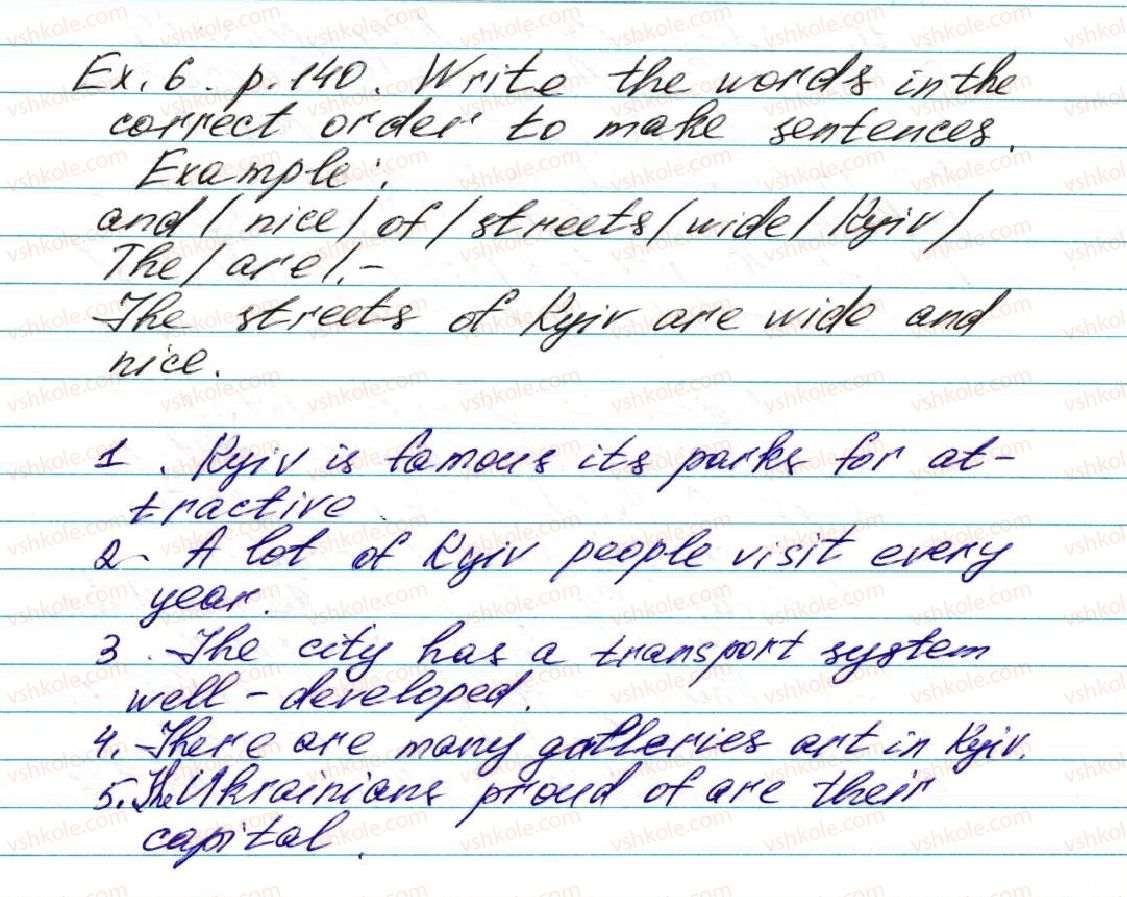 Ex. 6. p. 140. Write the words in the
correct order to make sentences.
Example:
and / nice / of / streets / wide / Kyiv /
The / are /. -
The streets of Kyiv are wide and
nice.
1. Kyiv is famous its parks for at-
tractive.
2. A lot of Kyiv people visit every
year.
3. The city has a transport system
well-developed.
4. There are many galleries art in Kyiv.
5. The Ukrainians proud of are their
capital.
vshkole.com